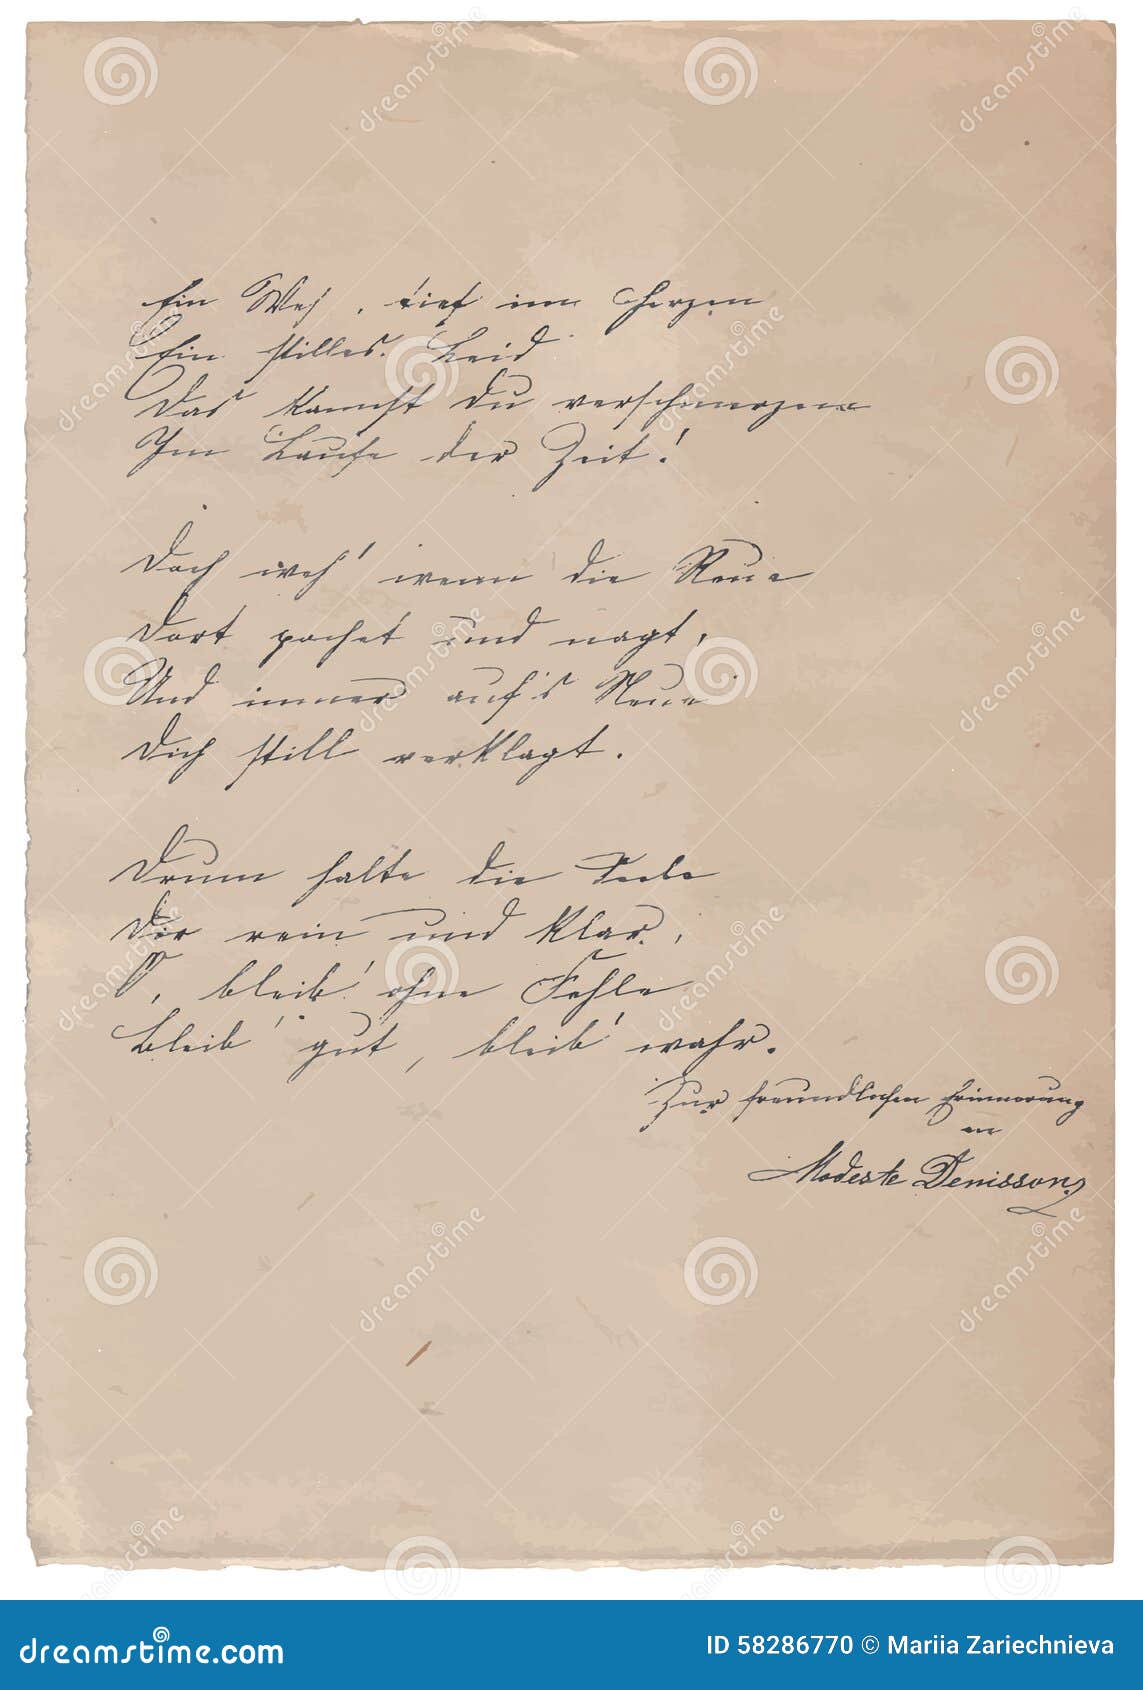 Ein Weh, tief im Herzen
Ein stilles Leid
Das kannst du verschmerzen
Im Laufe der Zeit!
Doch weh' wenn die Reue
Dort pochet und nagt,
Und immer auf's Neue
Dich still verklagt.
Drum halte die Seele
Dir rein und klar,
O, bleib' ohne Fehle
Bleib' gut, bleib' wahr.
Zur freundlichen Erinnerung
an
Modeste Denisson
dreamstime.com
ID 58286770 © Mariia Zariechnieva